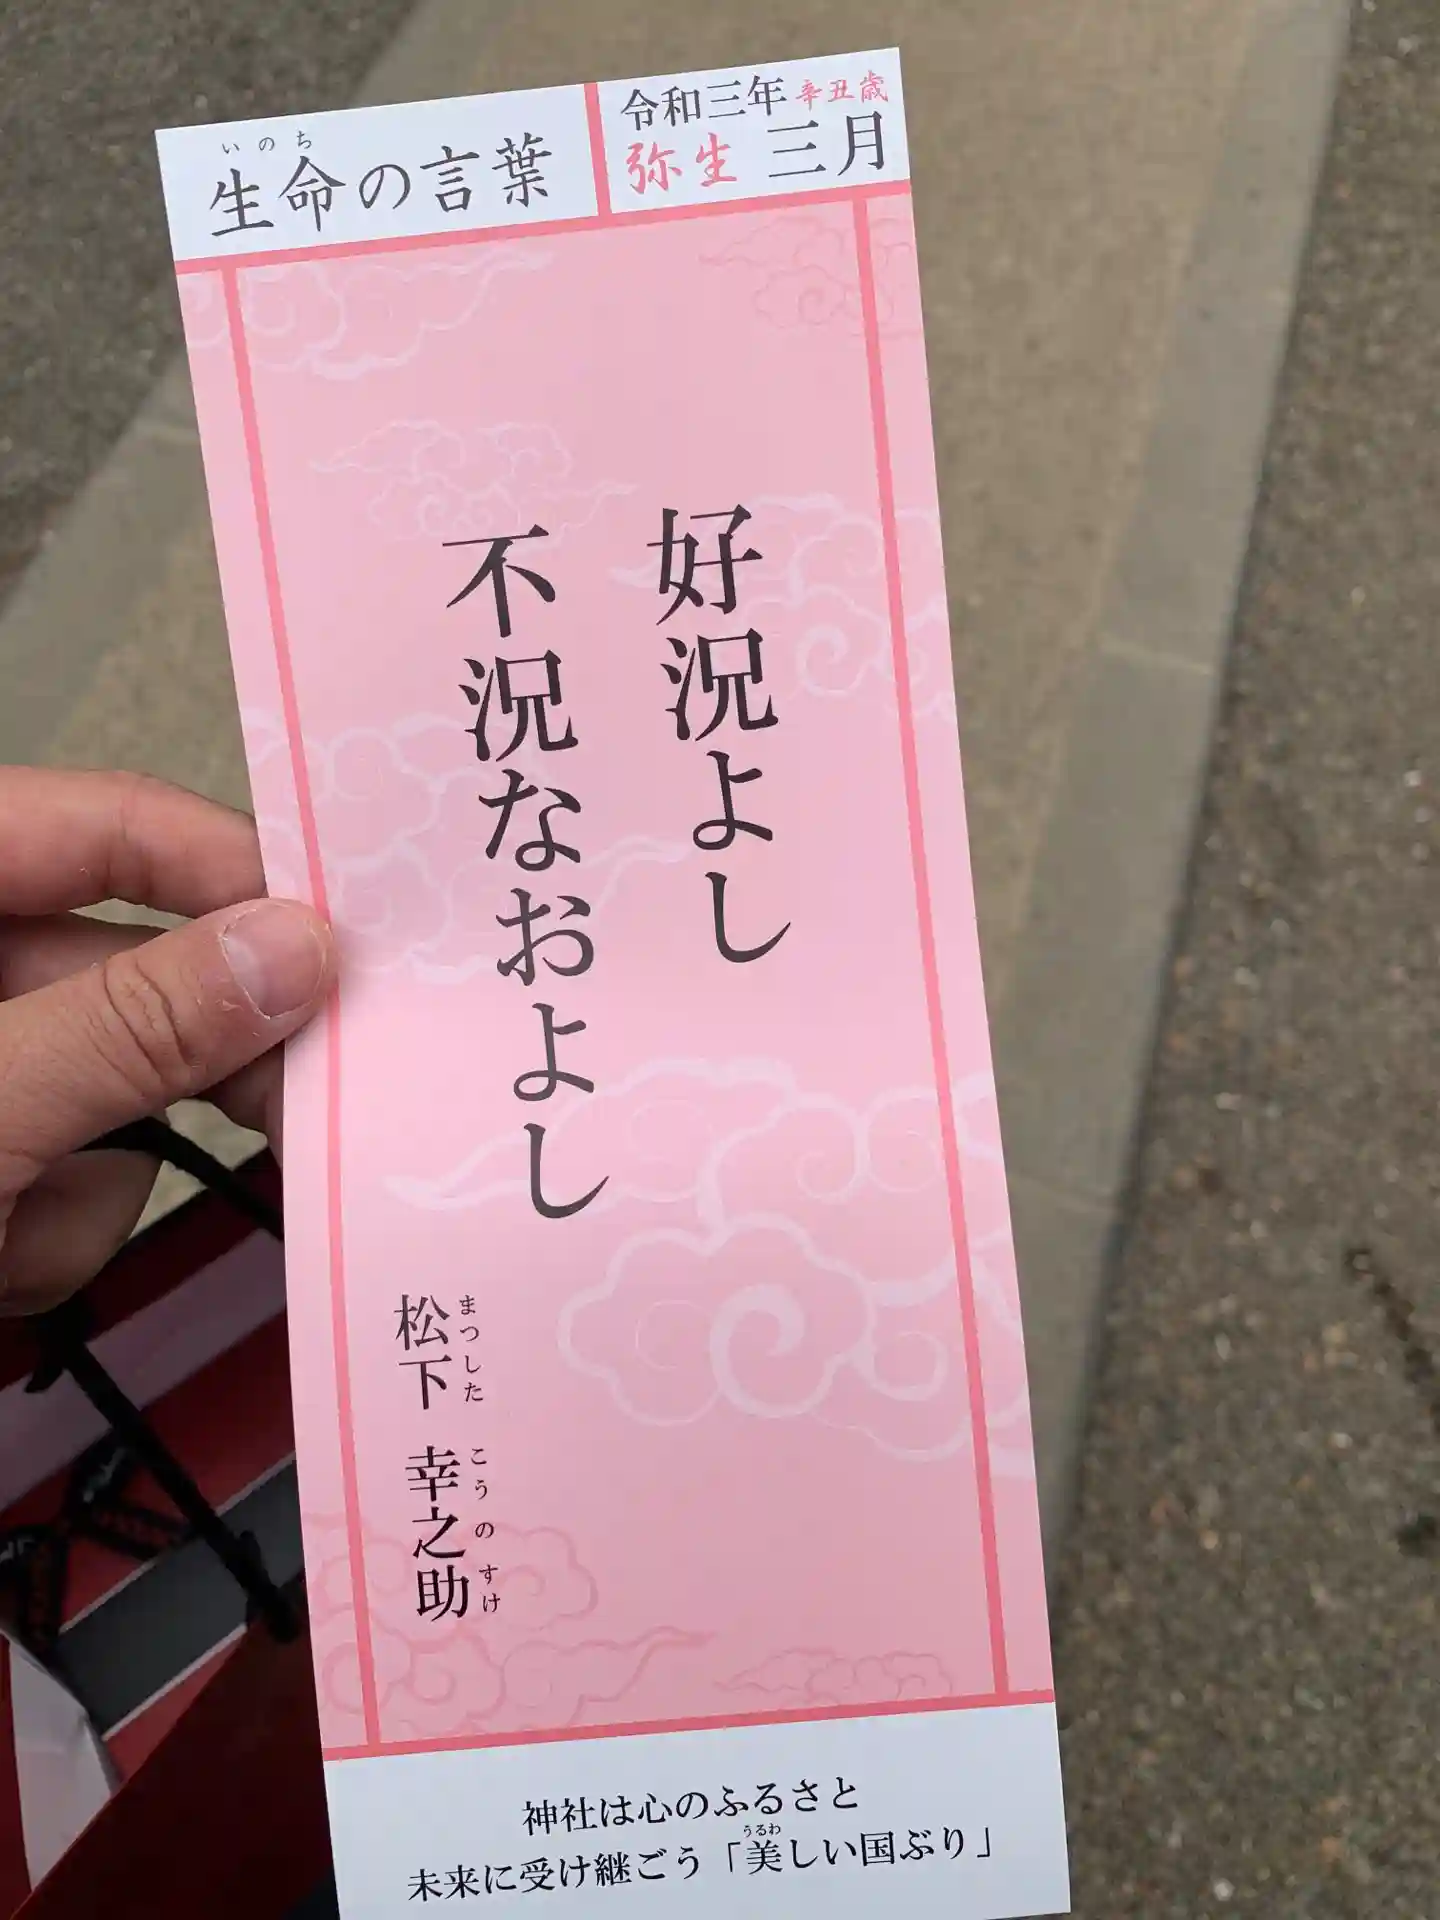 生命の言葉
いのち
令和三年 辛丑歳
弥生 三月
好況よし
不況なおよし
松下 幸之助
まつした こうのすけ
神社は心のふるさと
未来に受け継ごう「美しい国ぶり」
うるわ